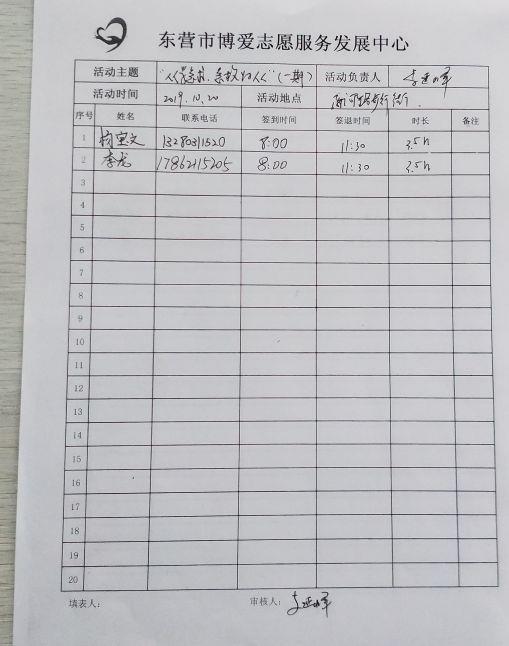 东营市博爱志愿服务发展中心
活动主题 "人人 急救 为人人"(一期) 活动负责人
活动时间 2019.10.20 活动地点 步行街
序号 姓名 联系电话 签到时间 签退时间 时长 备注
1 宝文 13280311520 8:00 11:30 3.5h
2 李龙 17862115205 8:00 11:30 3.5h
3
4
5
6
7
8
9
10
11
12
13
14
15
16
17
18
19
20
填表人: 审核人: